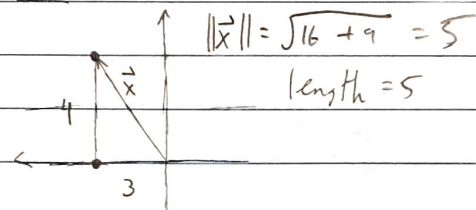 ||x⃗|| = √16 + 9 = 5
length = 5
x⃗
4
3